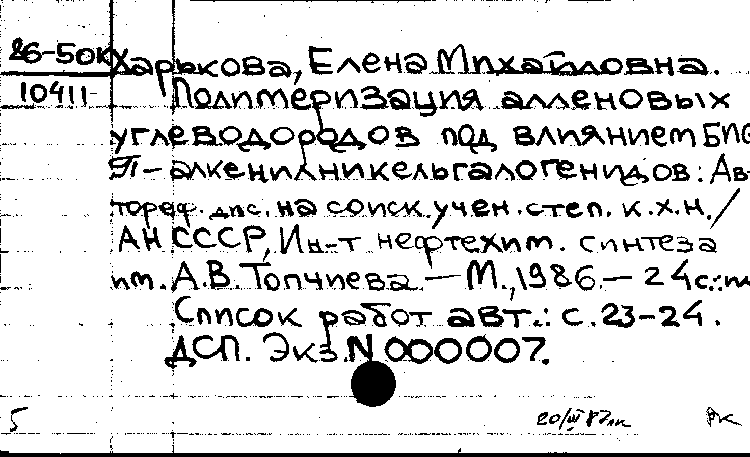 86-50к
10411
Харькова, Елена Михайловна.
Полимеризация алленовых
углеводородов под влиянием бис
π-алкенилникельгалогенидов: Ав-
тореф. дис. на соиск. учен. степ. к.х.н. /
АН СССР, Ин-т нефтехим. синтеза
им. А.В. Топчиева — М., 1986. — 24 с.: ил
Список работ авт.: с. 23-24.
ДСП. Экз. N 000007.
5
20/III 87